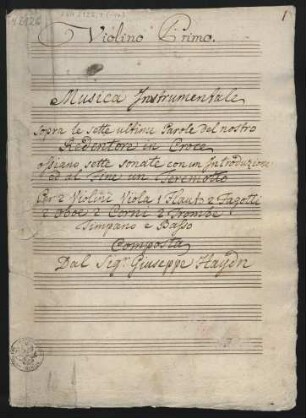 1
Violino Primo.
Musica Instrumentale
Sopra le sette ultime Parole del nostro
Redentore in Croce
ossiano sette Sonate con un Introduzione
ed al Fine un Teremotto
Per 2 Violini Viola 1 Flauto 2 Fagotti
2 Oboe 2 Corni 2 Trombe
Timpano e Basso
Composta
Dal Sigr. Giuseppe Haydn